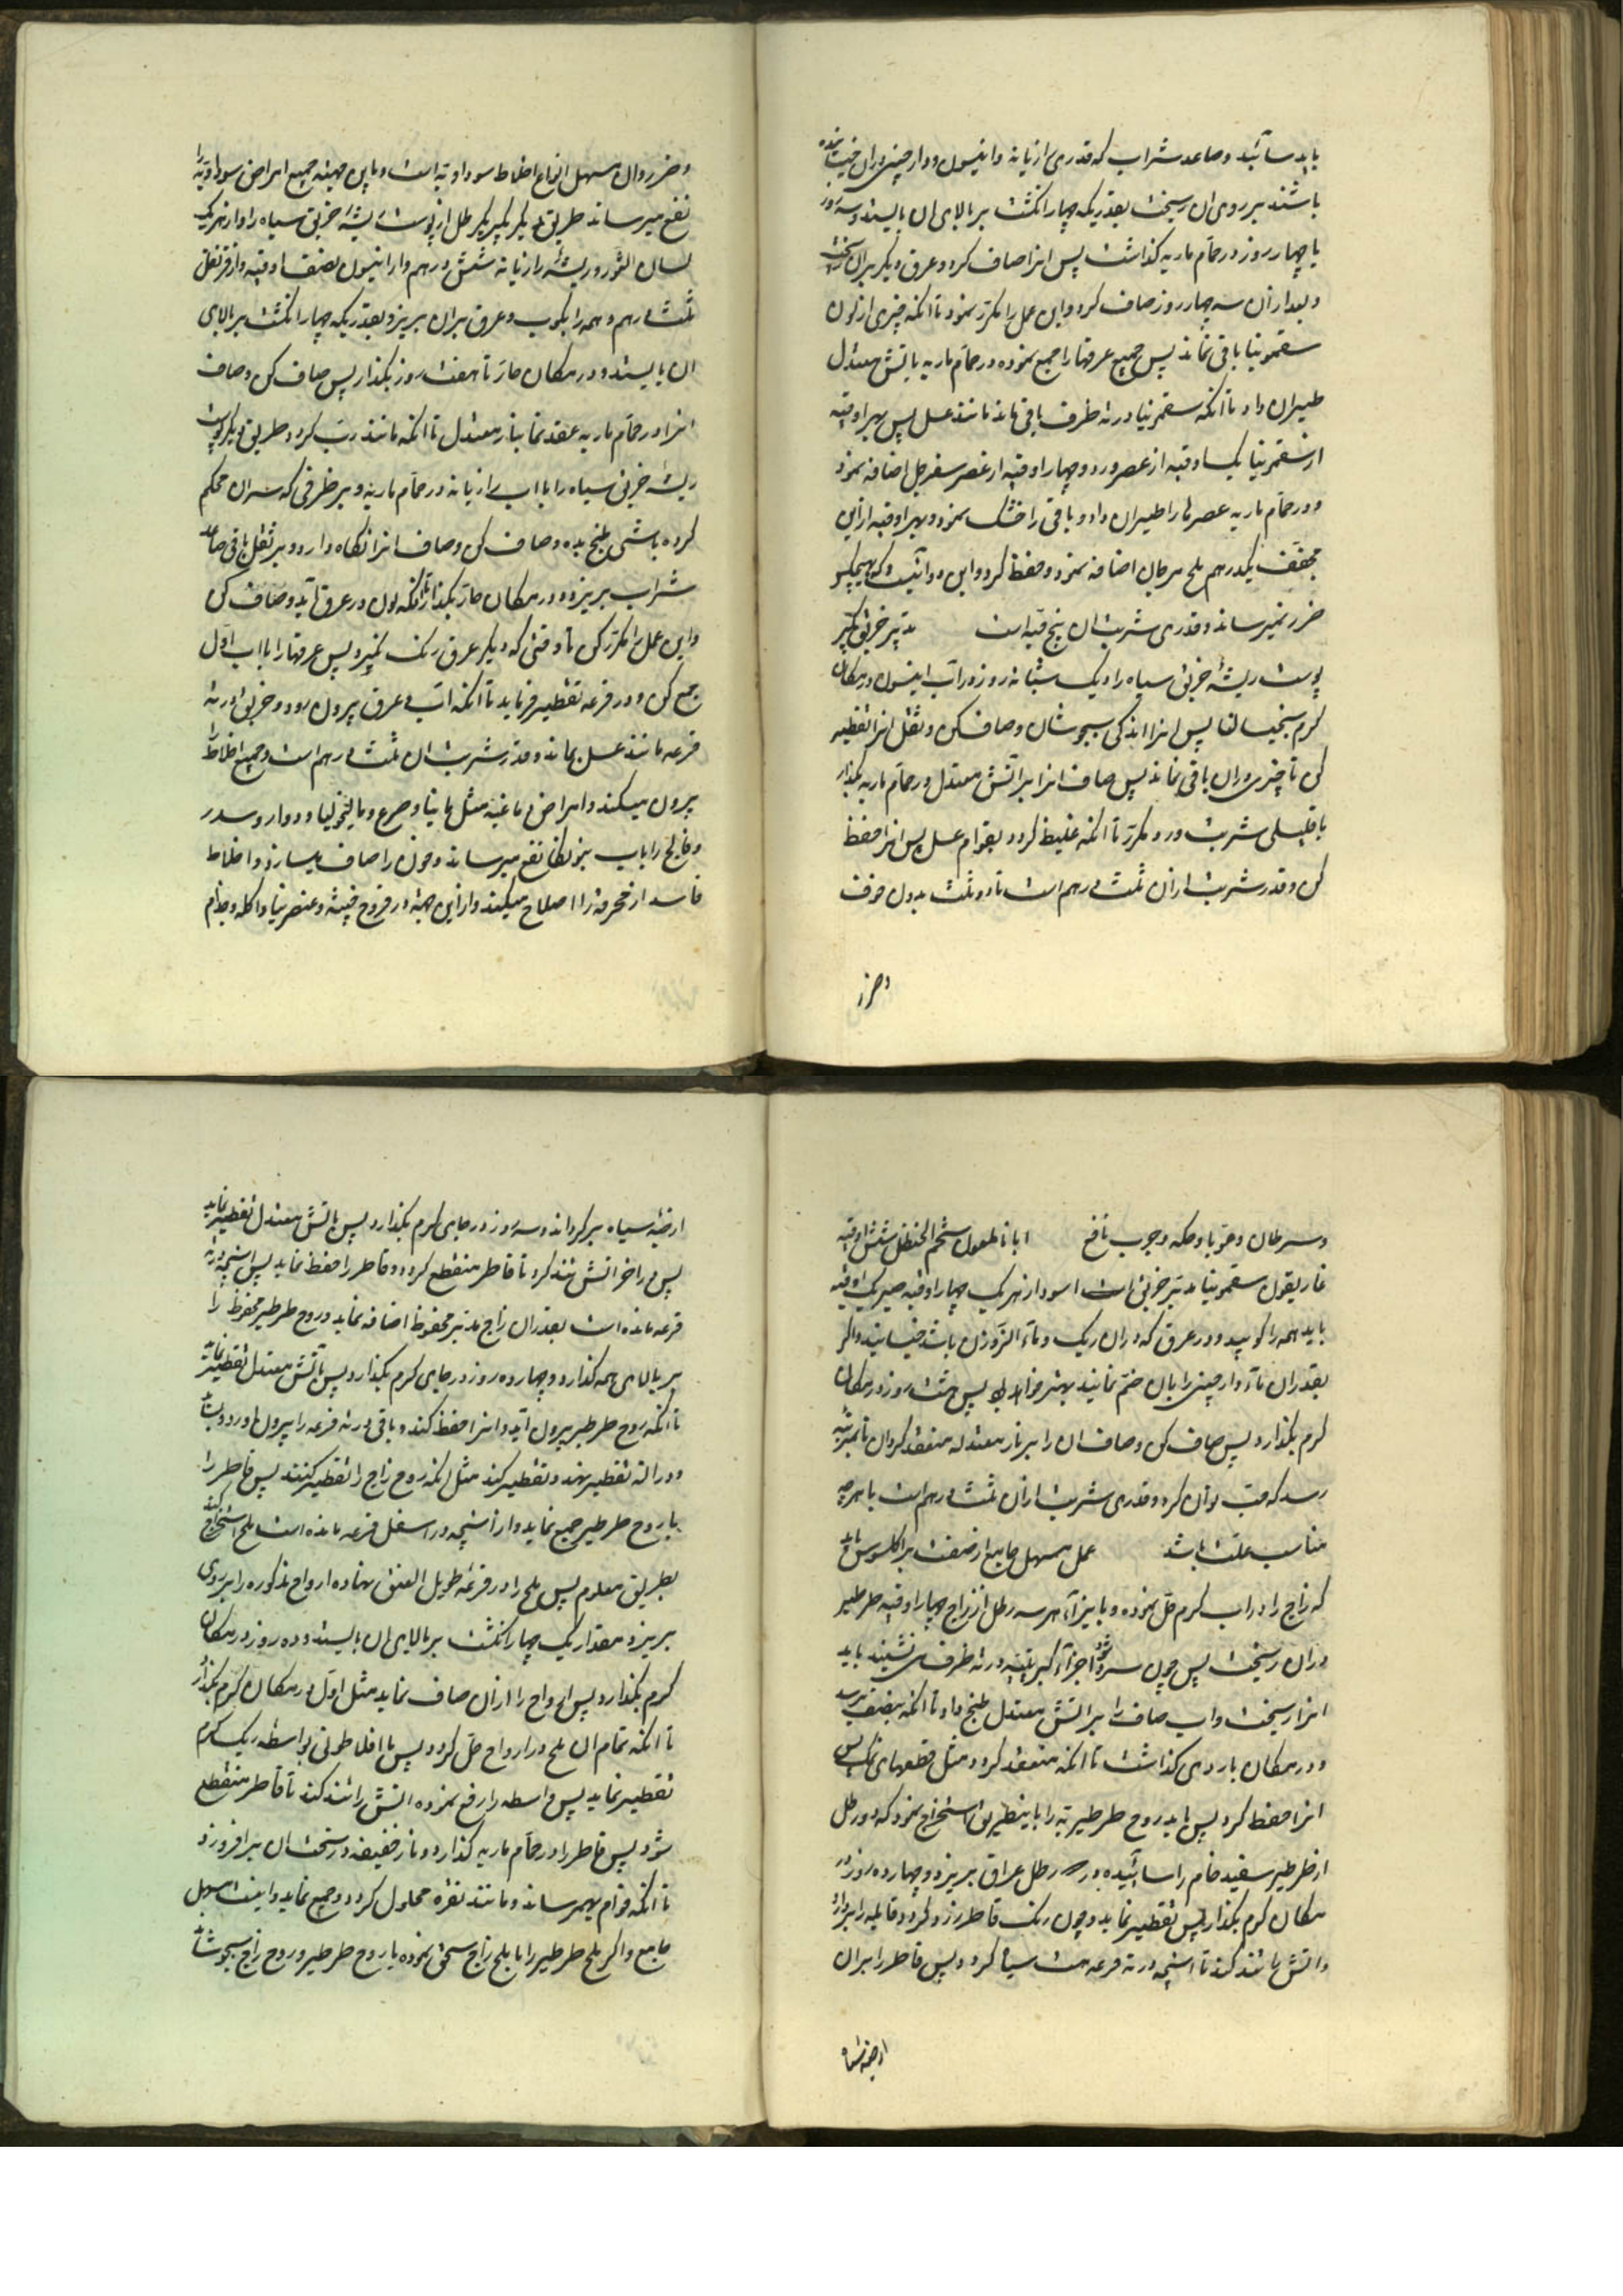 باید سائید و صاعد شراب که قدری رازیانه و انیسون و دارچینی در ان خیسانیده
باشند بر روی ان ریخت بقدریکه چهار انکشت بر بالای ان بایستد و سه روز
یا چهار روز در حمام ماریه کذاشت پس انرا صاف کرد و عرق دیکر بر ان ریخت
و بعد از ان سه چهار روز صاف کرد و این عمل را مکرر نمود تا انکه چیزی از لون
سقمونیا باقی نماند پس جمیع عرقها را جمع نموده در حمام ماریه باتش معتدل
طیران داد تا انکه سقمونیا در ته ظرف باقی ماند مانند عسل پس بهر اوقیه
از سقمونیا یک اوقیه از عصر ورد و چهار اوقیه از عصر سفرجل اضافه نمود
و در حمام ماریه عصرها را طیران داد و باقی را خشک نمود و بهر اوقیه از این
مجفف یکدرهم ملح مرجان اضافه نمود و حفظ کرد و این دوائیست که بهیچکس
ضرر نمیرساند و قدری شربت ان پنج قیه است تدبیر خربق کبیر
پوست ریشه خربق سیاه را یک شبانه روز در آب انیسون در مکان
کرم بخیسان پس انرا اندکی بجوشان و صاف کن و ثقل انرا تقطیر
کن تا چیزی در ان باقی نماند پس صاف انرا بر آتش معتدل در حمام ماریه بکذار
با قلیلی شربت ورد مکرر تا انکه غلیظ کردد بقوام عسل پس انرا حفظ
کن و قدر شربت از ان ثلث درهم است تا دو ثلث بدون خوف
و ضرر
و ضرر و ان مسهل انواع اخلاط سوداویه است و باین جهة جمیع امراض سوداویه را
نفع میرساند طریق دیکر بکیر یکرطل از پوست ریشه خربق سیاه را و از هر یک
لسان الثور و ریشه رازیانه شش درهم و از انیسون نصف اوقیه و از قرنفل
ثلث درهم و همه را بکوب و عرق بر ان بریز و بقدریکه چهار انکشت بر بالای
ان بایستد و در مکان حار تا هفت روز بکذار پس صاف کن و صاف
انرا در حمام ماریه عقد نما بنار معتدل تا انکه مانند رب کردد طریق دیکر پوست
ریشه خربق سیاه را با اب رازیانه در حمام ماریه و بر ظرفی که سر ان محکم
کرده باشی طبخ بده و صاف کن و صاف انرا نکاه دار و بر ثقل باقی صاعد
شراب بریز و در مکان حار بکذار تا انکه لون در عرق آید و صاف کن
و این عمل را مکرر کن تا وقتی که دیکر عرق رنک نکیرد پس عرقها را با اب اول
جمع کن و در قرعه تقطیر فرماید تا انکه اب و عرق بیرون رود و خربق در ته
قرعه مانند عسل بماند و قدر شربت ان ثلث درهم است و جمیع اخلاط را
بیرون میکند و امراض دماغیه مثل مانیا و صرع و مالیخولیا و دوار و سدر
و فالج را باب نفع میرساند و خون را صاف میسازد و اخلاط
فاسد از محرقه را اصلاح میکند و از این جهة در قروح خبیثه و اکله و جذام
و سرطان و قوبا و حکه و جرب نافع شحم الحنظل شش اوقیه
غاریقون سقمونیا تدبیر خربق اسود از هر یک چهار اوقیه صبر یک اوقیه
باید همه را کوبید و در عرق که در ان ریک و باشد خیسانید و اکر
بقدر ان ماء دارچینی را بان ضم نمایند بهتر خواهد بود پس هشت روز در مکان
کرم بکذار و پس صاف کن و صاف ان را بر نار معتدله منعقد کردان تا بمرتبه
رسد که حب توان کرد و قدری شربت از ان ثلث درهم است با هر چه
مناسب علت باشد عمل مسهل جامع از صنعت براکلسوس باید
که زاج را در اب کرم حل نموده و بازاء هر سه رطل از زاج چهار اوقیه طرطیر
در ان ریخت پس چون سرد شود اجزاء کبریتیه در ته ظرف می نشیند باید
انرا ریخت و اب صاف را بر اتش معتدل طبخ داد تا انکه بنصف برسد
و در مکان باردی کذاشت تا انکه منعقد کردد مثل قطعهای نمک پس
انرا حفظ کرد پس باید روح طرطیریه را باینطریق استخراج نمود که دو رطل
از طرطیر سفید خام را سائیده در رطل عراق بریزد و چهارده روز در
مکان کرم بکذار پس تقطیر نماید و چون رنک قاطر زرد کردد قابله را بردار
و اتش را تند کند تا انچه در ته قرعه هست سیاه کردد پس قاطر را بر ان
ارضیه سیاه
ارضیه سیاه بر کرداند و سه روز در جای کرم بکذارد پس باتش معتدل تقطیر نماید
پس در اخر اتش تند کرد تا قاطر منقطع کردد و قاطر را حفظ نماید پس انچه در ته
قرعه مانده است بقدر ان زاج مدبر محفوظ اضافه نماید و روح طرطیر محفوظ را
بر بالای همه کذارد و چهارده روز در جای کرم بکذارد پس بآتش معتدل تقطیر نماید
تا انکه روح طرطیر بیرون آید و انرا حفظ کند و باقی در ته قرعه را بیرون اورد
و در الة تقطیر نهد و تقطیر کند مثل انکه روح زاج را تقطیر کنند پس قاطر را
با روح طرطیر جمع نماید و از انچه در اسفل قرعه مانده است ملح استخراج کند
بطریق معلوم پس ملح را در قرعه طویل العنق نهاده ارواح مذکوره را بر روی
بریزد بمقداریکه چهار انکشت بر بالای ان بایستد و ده روز در مکان
کرم بکذارد پس ارواح را از ان صاف نماید مثل اول در مکان کرم بکذارد
تا انکه تمام ان ملح در ارواح حل کردد پس با افلاطونی بواسطه ریک کرم
تقطیر نماید پس واسطه را رفع نموده اتش را تند کند تا قاطر منقطع
شود پس قاطر را در حمام ماریه کذارد و نار خفیفه در تحت ان بر افروزد
تا انکه قوام بهمرساند و مانند نقره محلول کردد و جمع نماید و اینست مسهل
جامع و اکر ملح طرطیر را با ملح زاج سحق نموده با روح طرطیر و روح زاج بجوشاند